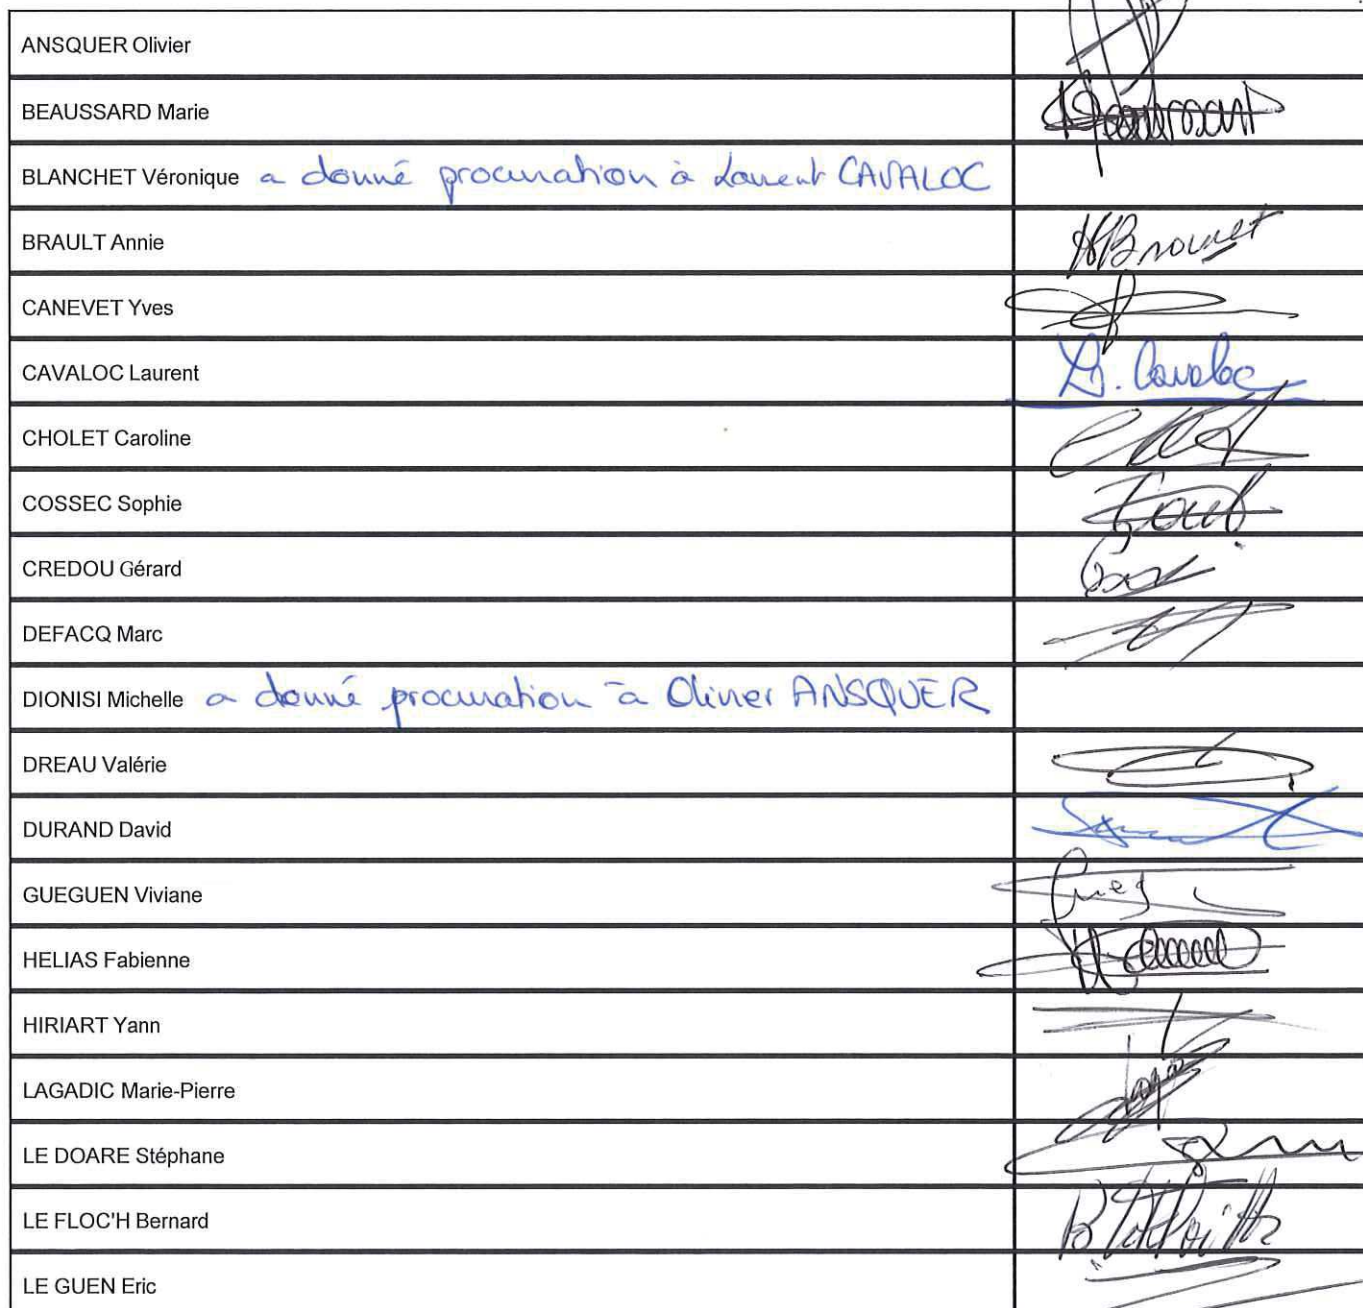 ANSQUER Olivier
BEAUSSARD Marie
BLANCHET Véronique a donné procuration à Laurent CAVALOC
BRAULT Annie
CANEVET Yves
CAVALOC Laurent L. Cavaloc
CHOLET Caroline
COSSEC Sophie
CREDOU Gérard
DEFACQ Marc
DIONISI Michelle a donné procuration à Olivier ANSQUER
DREAU Valérie
DURAND David
GUEGUEN Viviane
HELIAS Fabienne
HIRIART Yann
LAGADIC Marie-Pierre
LE DOARE Stéphane
LE FLOC'H Bernard
LE GUEN Eric